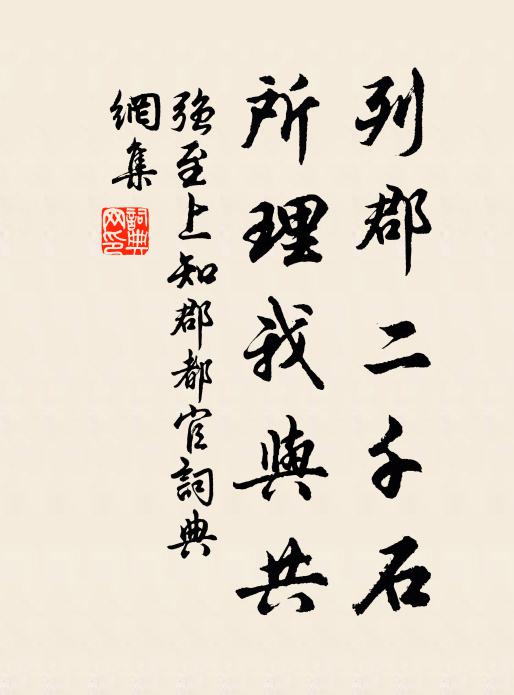 列郡二千石
所理我與共
强至上知郡都官詞典
網集
詞典
网印